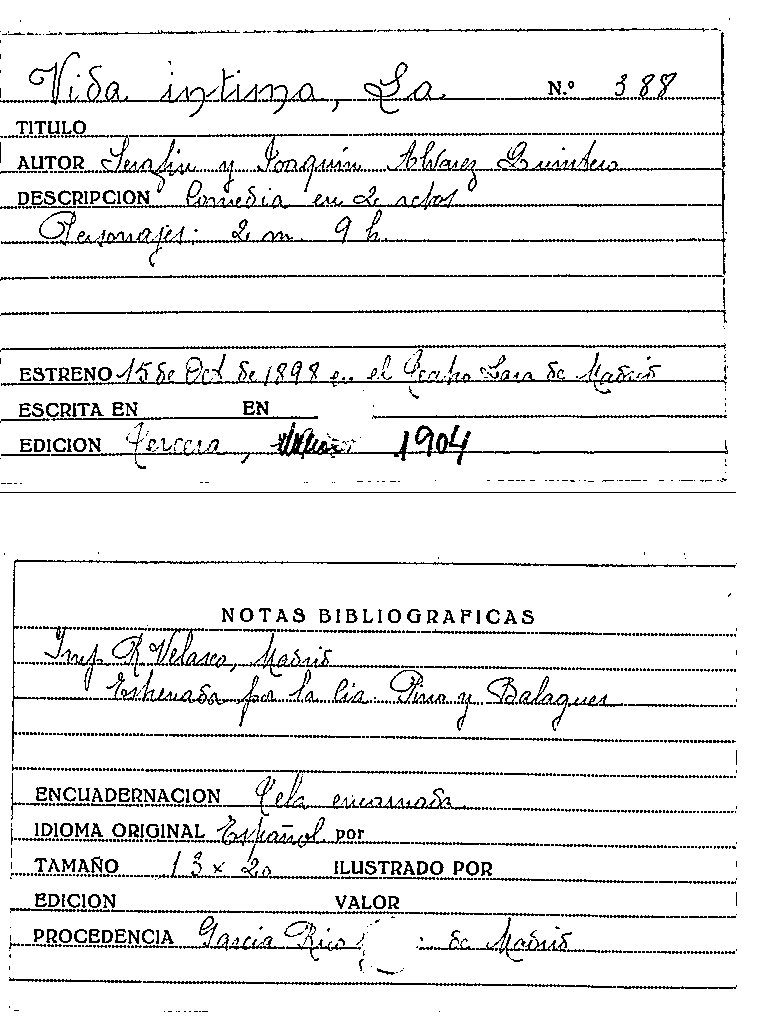 Vida intima, La N.º 388
TITULO
AUTOR Serafin y Joaquin Alvarez Quintero
DESCRIPCION Comedia en 2 actos
Personajes: 2 m. 9 h.
ESTRENO 15 de Oct de 1898 en el Teatro Lara de Madrid
ESCRITA EN EN
EDICION Tercera, 1904
NOTAS BIBLIOGRAFICAS
Imp. R Velasco, Madrid
Estrenada por la Cia. Pino y Balaguer
ENCUADERNACION Tela encarnada
IDIOMA ORIGINAL Español por
TAMAÑO 13 x 20 ILUSTRADO POR
EDICION VALOR
PROCEDENCIA Garcia Rico de Madrid